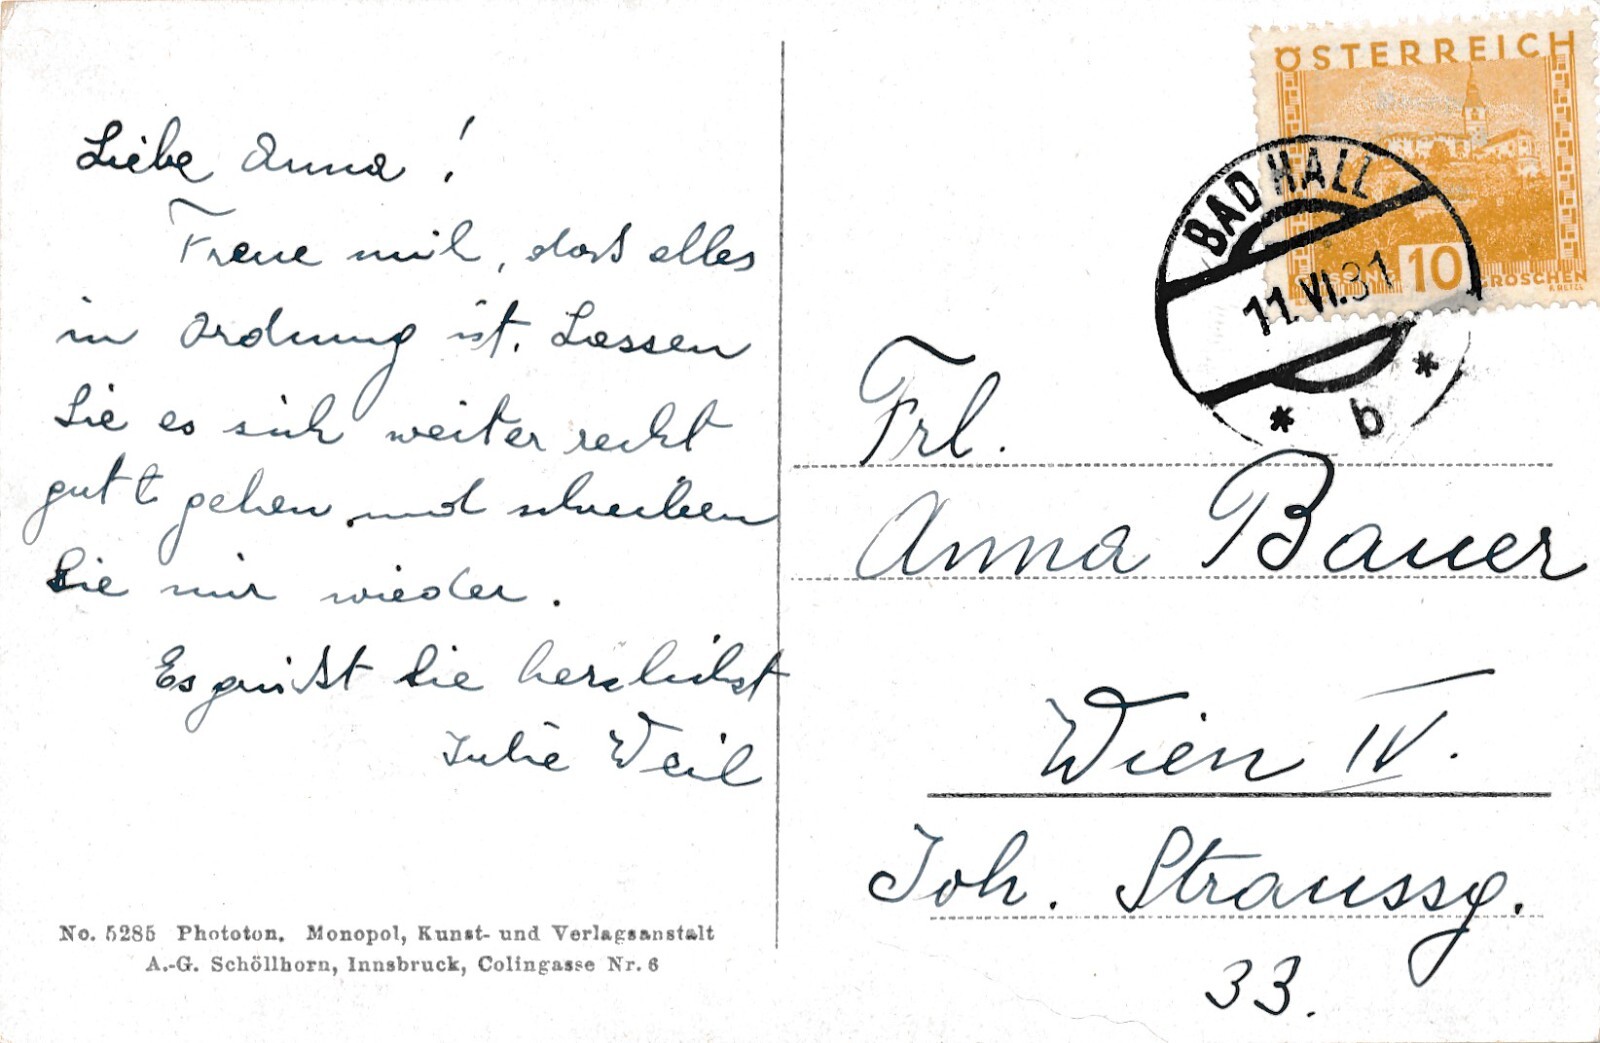 Liebe Anna!
Freue mich, dass alles
in Ordnung ist. Lassen
Sie es sich weiter recht
gutt gehen und schreiben
Sie mir wieder.
Es grüsst Sie herzlichst
Julie Weil
No. 5285 Phototon. Monopol, Kunst- und Verlagsanstalt
A.-G. Schöllhorn, Innsbruck, Colingasse Nr. 6
ÖSTERREICH
10
GROSCHEN
BAD HALL
11.VI.31
* b *
Frl.
Anna Bauer
Wien IV.
Joh. Straussg.
33.